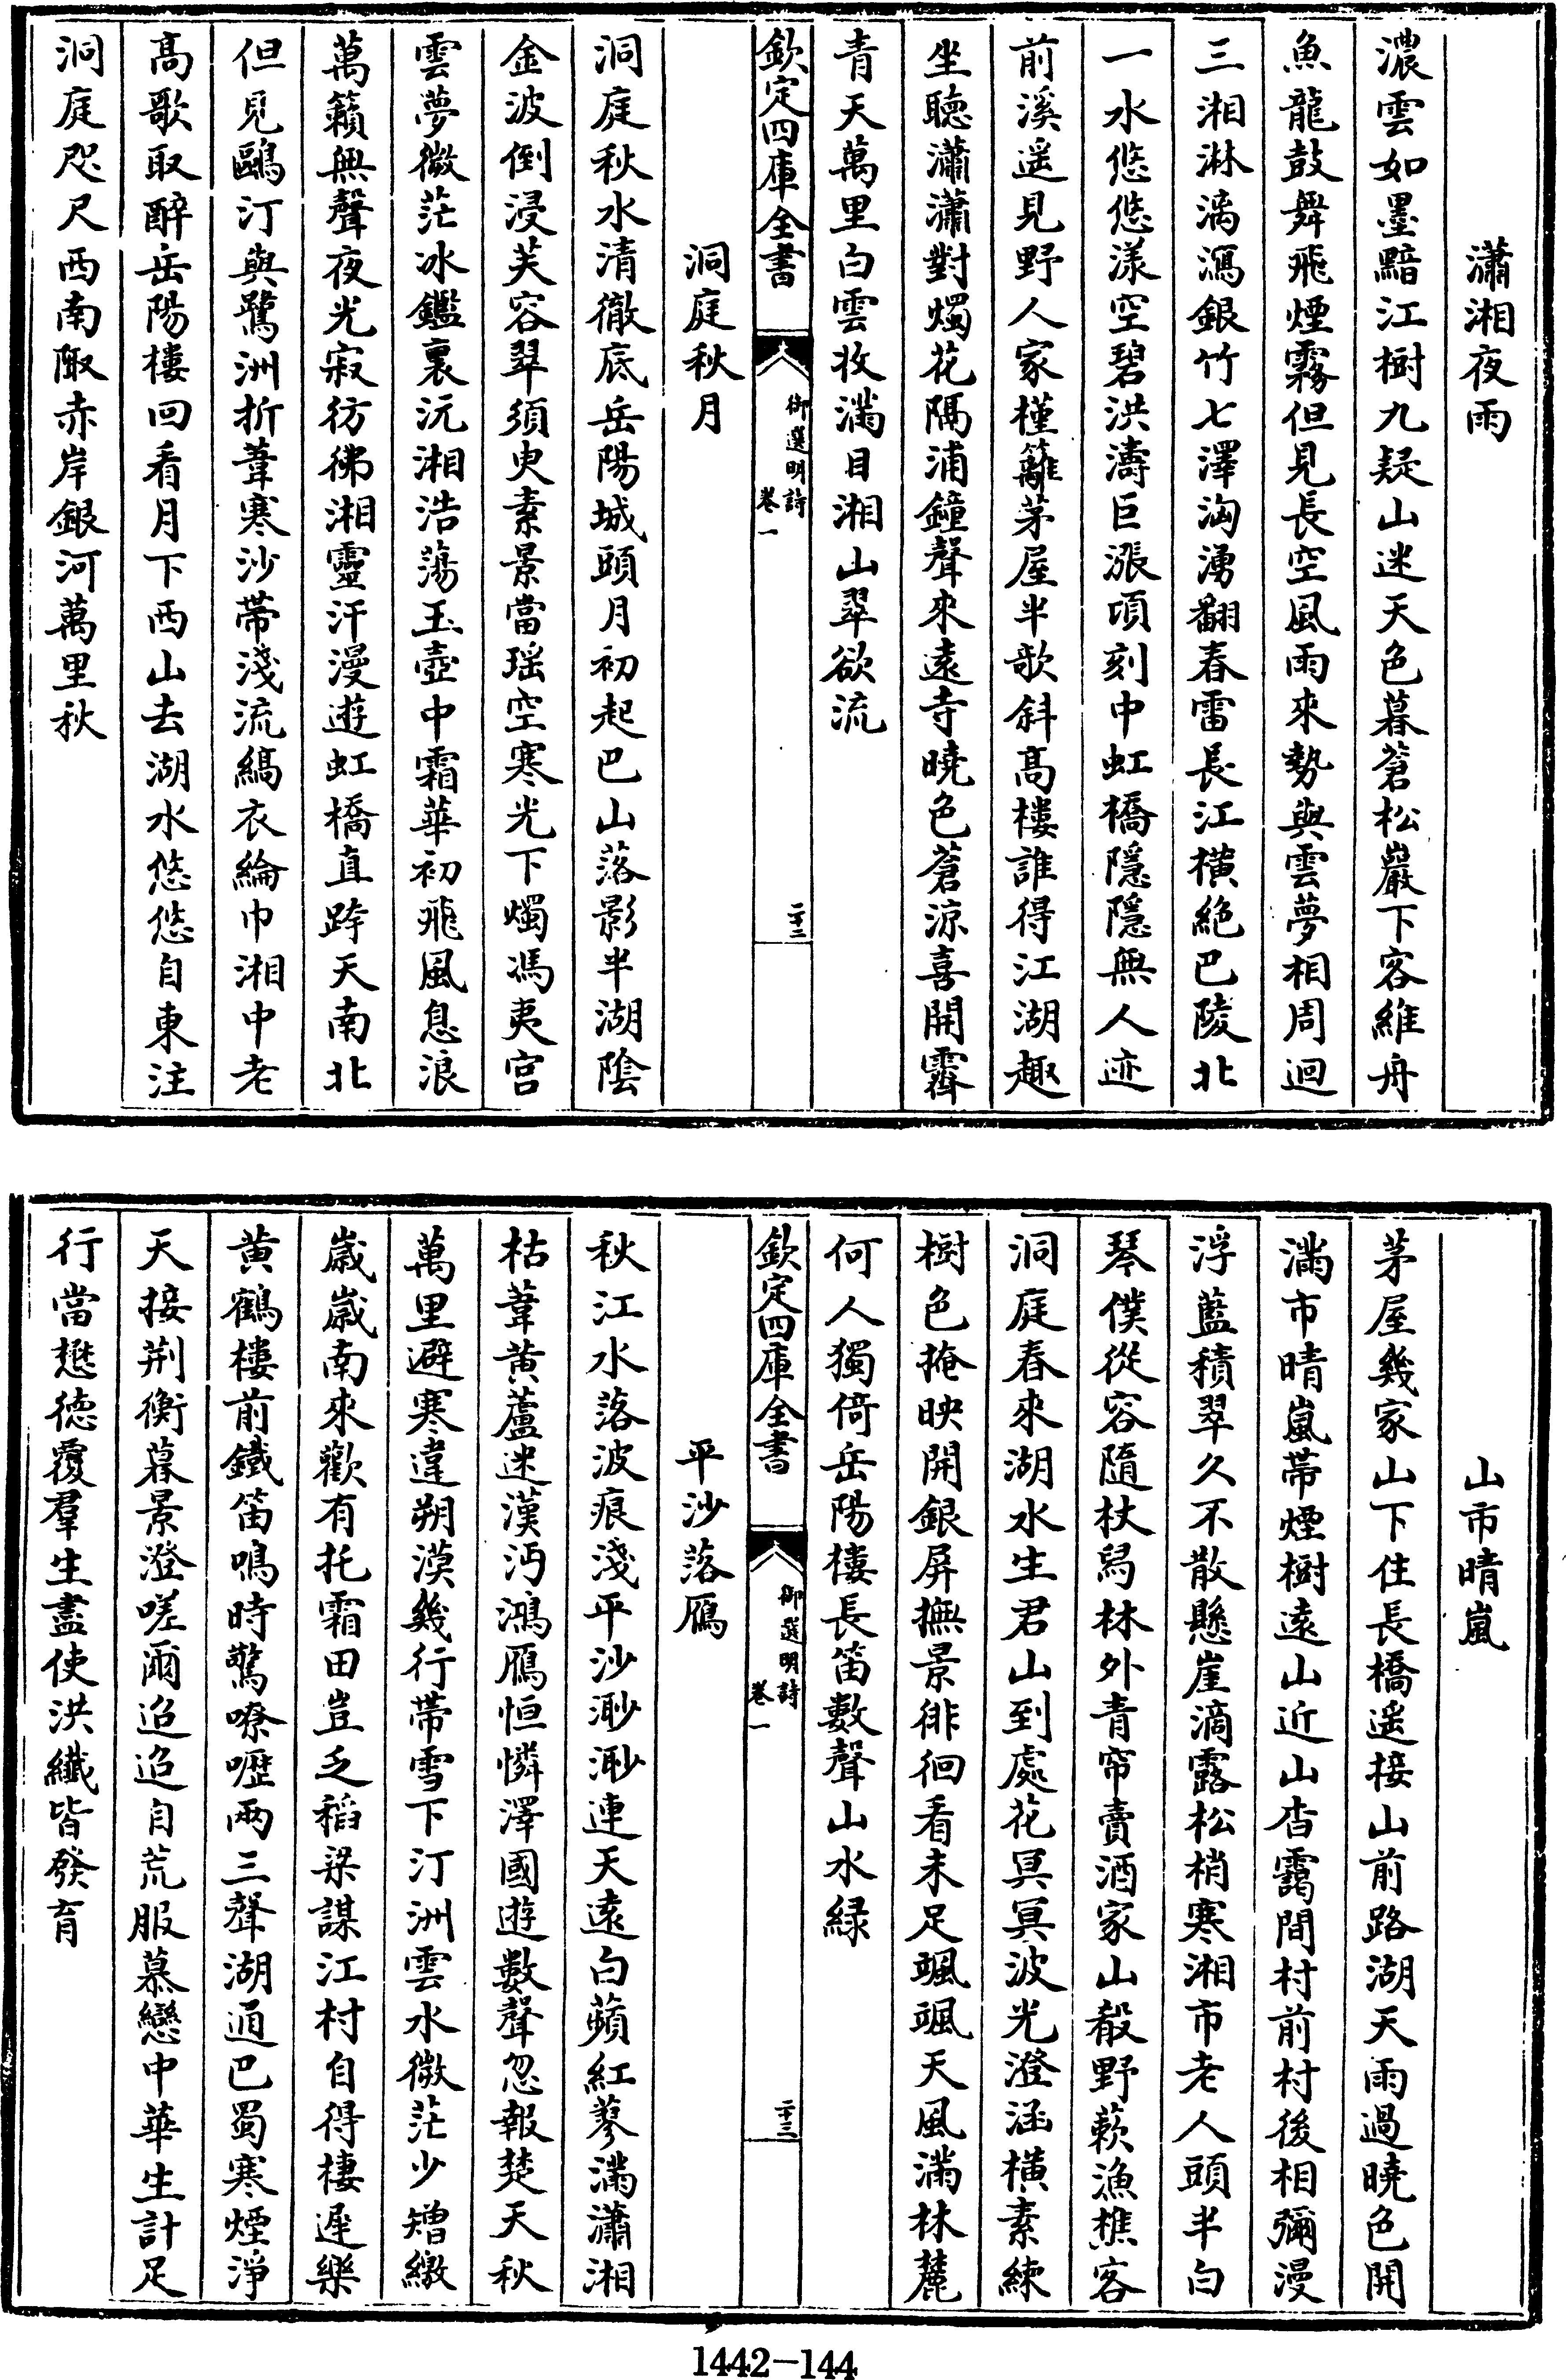 瀟湘夜雨
濃雲如墨黯江樹九疑山迷天色暮蒼松巖下客維舟
魚龍鼓舞飛煙霧但見長空風雨來勢與雲夢相周迴
三湘淋漓瀉銀竹七澤洶湧翻春雷長江橫絶巴陵北
一水悠悠漾空碧洪濤巨漲頃刻中虹橋隱隱無人迹
前溪遥見野人家槿籬茅屋半欹斜高樓誰得江湖趣
坐聽瀟瀟對燭花隔浦鐘聲來遠寺曉色蒼凉喜開霽
青天萬里白雲收滿目湘山翠欲流
欽定四庫全書
御選明詩
卷一
二十二
洞庭秋月
洞庭秋水清徹底岳陽城頭月初起巴山落影半湖陰
金波倒浸芙容翠須臾素景當瑶空寒光下燭馮夷宫
雲夢微茫冰鑑裏沅湘浩蕩玉壺中霜華初飛風息浪
萬籟無聲夜光寂彷彿湘靈汗漫遊虹橋直跨天南北
但見鷗汀與鷺洲折葦寒沙帶淺流縞衣綸巾湘中老
髙歌取醉岳陽樓回看月下西山去湖水悠悠自東注
洞庭咫尺西南陬赤岸銀河萬里秋
山市晴嵐
茅屋幾家山下住長橋遥接山前路湖天雨過曉色開
滿市晴嵐帶煙樹遠山近山杳靄間村前村後相彌漫
浮藍積翠久不散懸崖滴露松梢寒湘市老人頭半白
琴僕從容隨杖舄林外青帘賣酒家山殽野蔌漁樵客
洞庭春來湖水生君山到處花冥冥波光澄涵橫素練
樹色掩映開銀屏撫景徘徊看未足颯颯天風滿林麓
何人獨倚岳陽樓長笛數聲山水緑
欽定四庫全書
御選明詩
卷一
二十三
平沙落鴈
秋江水落波痕淺平沙渺渺連天遠白蘋紅蓼滿瀟湘
枯葦黄蘆迷漢沔鴻鴈恒憐澤國遊數聲忽報楚天秋
萬里避寒違朔漠幾行帶雪下汀洲雲水微茫少矰繳
歲歲南來歡有托霜田豈乏稻粱謀江村自得棲遲樂
黄鶴樓前鐵笛鳴時驚嘹嚦兩三聲湖通巴蜀寒煙淨
天接荆衡暮景澄嗟爾迢迢自荒服慕戀中華生計足
行當懋德覆羣生盡使洪纖皆發育
1442-144